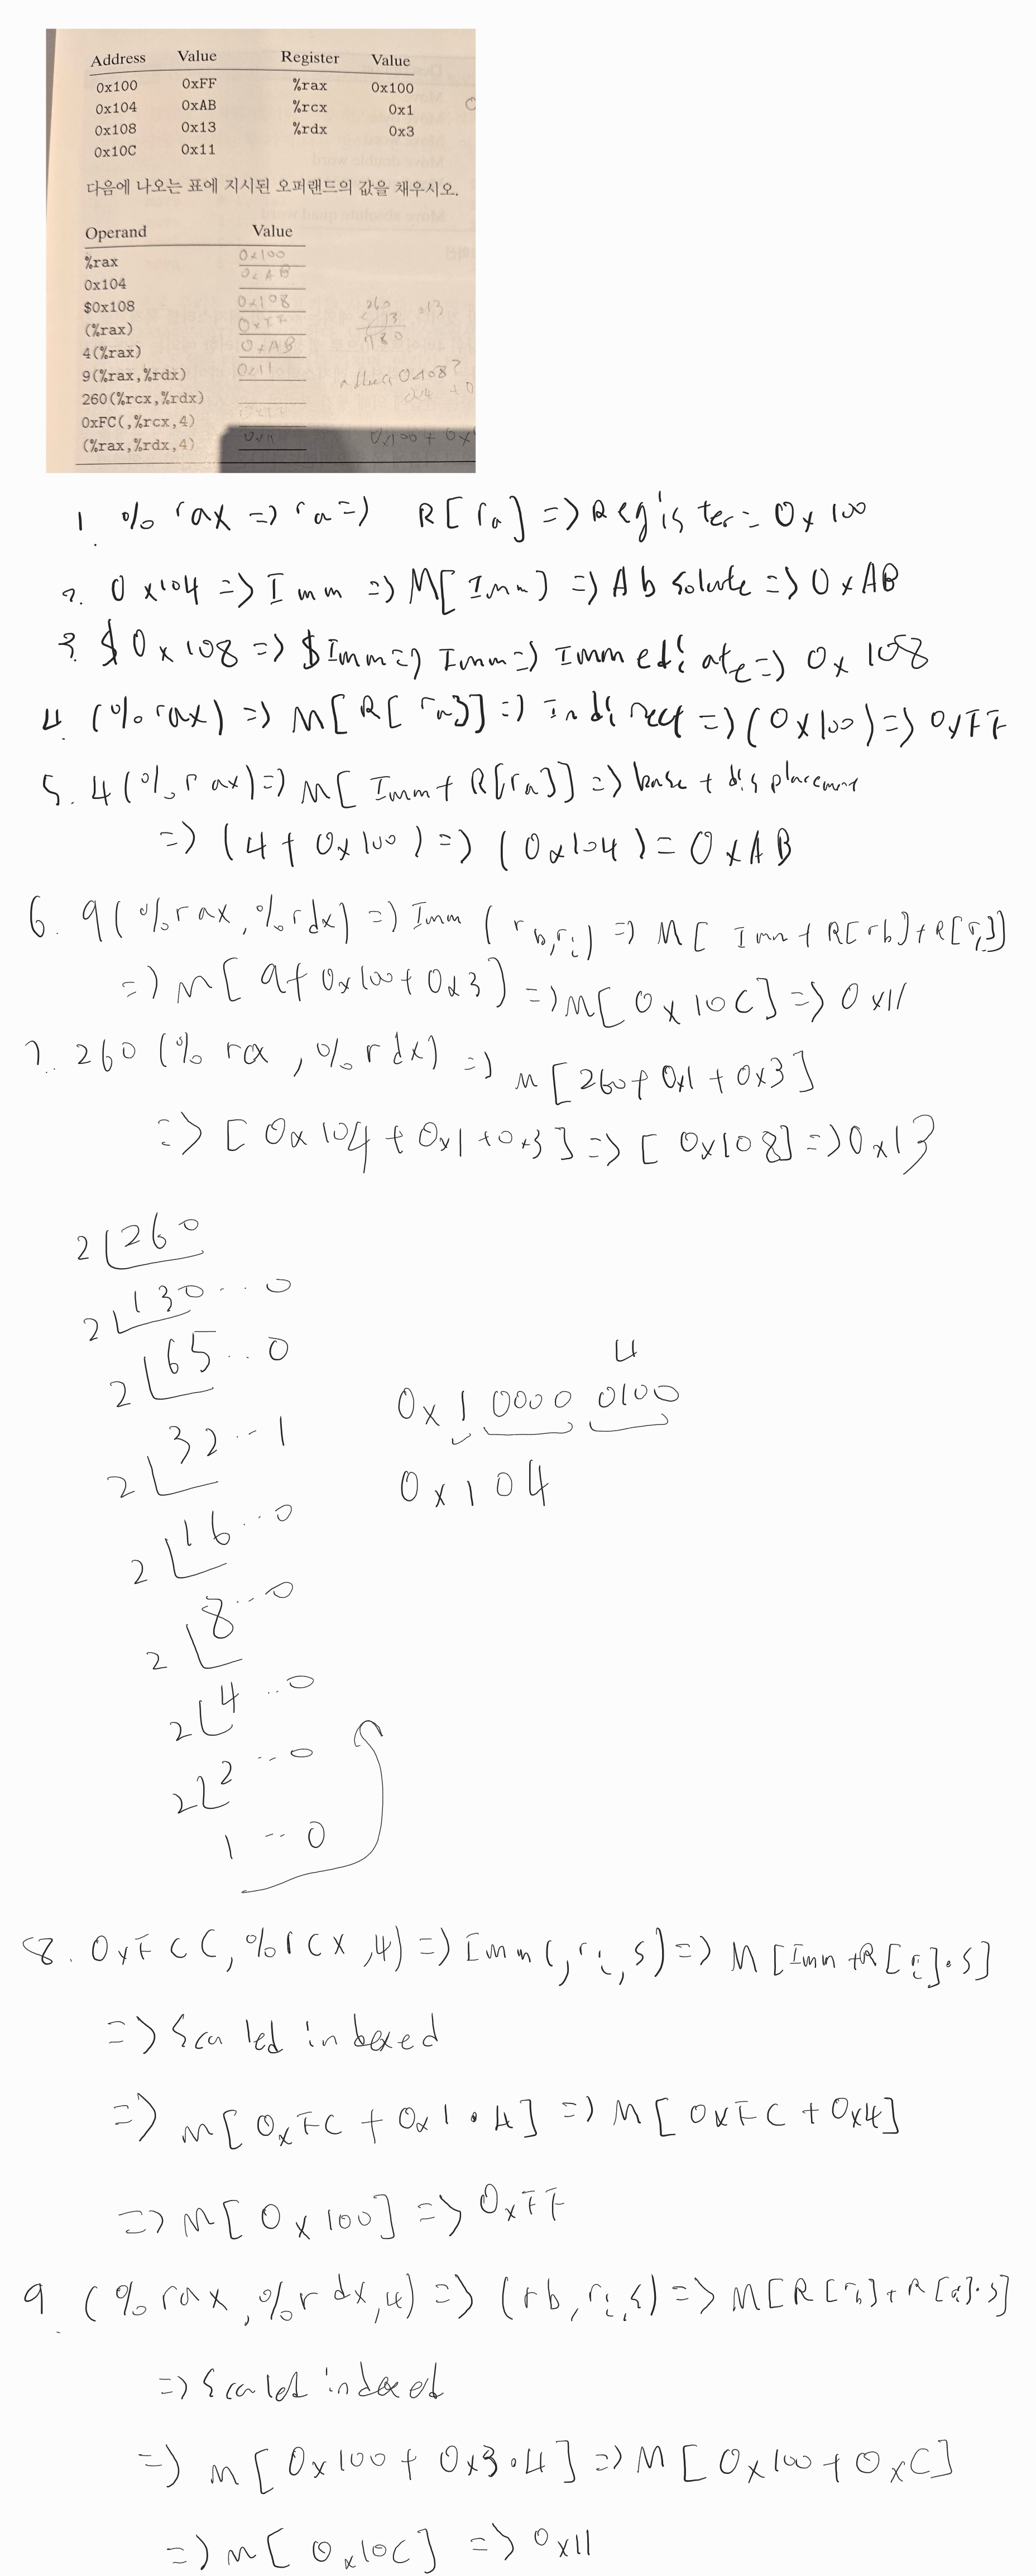 Address Value Register Value
0x100 0xFF %rax 0x100
0x104 0xAB %rcx 0x1
0x108 0x13 %rdx 0x3
0x10C 0x11
다음에 나오는 표에 지시된 오퍼랜드의 값을 채우시오.
Operand Value
%rax 0x100
0x104 0xAB
$0x108 0x108
(%rax) 0xFF
4(%rax) 0xAB
9(%rax,%rdx) 0x11
260(%rcx,%rdx)
0xFC(,%rcx,4) 0xFF
(%rax,%rdx,4) 0x11
1. %rax => ra => R[ra] => Register = 0x100
2. 0x104 => Imm => M[Imm] => Absolute => 0xAB
3. $0x108 => $Imm => Imm => Immediate => 0x108
4. (%rax) => M[R[ra]] => Indirect => (0x100) => 0xFF
5. 4(%rax) => M[Imm + R[ra]] => base + displacement
=> (4 + 0x100) => (0x104) = 0xAB
6. 9(%rax,%rdx) => Imm(rb,ri) => M[Imm + R[rb] + R[ri]]
=> M[9 + 0x100 + 0x3] => M[0x10C] => 0x11
7. 260(%rcx,%rdx) => M[260 + 0x1 + 0x3]
=> [0x104 + 0x1 + 0x3] => [0x108] => 0x13
2 260
2 130 ... 0
2 65 .. 0
2 32 .. 1
2 16 .. 0
2 8 .. 0
2 4 .. 0
2 2 .. 0
1 .. 0
4
0x 1 0000 0100
0x104
8. 0xFC(,%rcx,4) => Imm(,ri,s) => M[Imm + R[ri]·s]
=> Scaled indexed
=> M[0xFC + 0x1·4] => M[0xFC + 0x4]
=> M[0x100] => 0xFF
9. (%rax,%rdx,4) => (rb,ri,s) => M[R[rb] + R[ri]·s]
=> Scaled indexed
=> M[0x100 + 0x3·4] => M[0x100 + 0xC]
=> M[0x10C] => 0x11